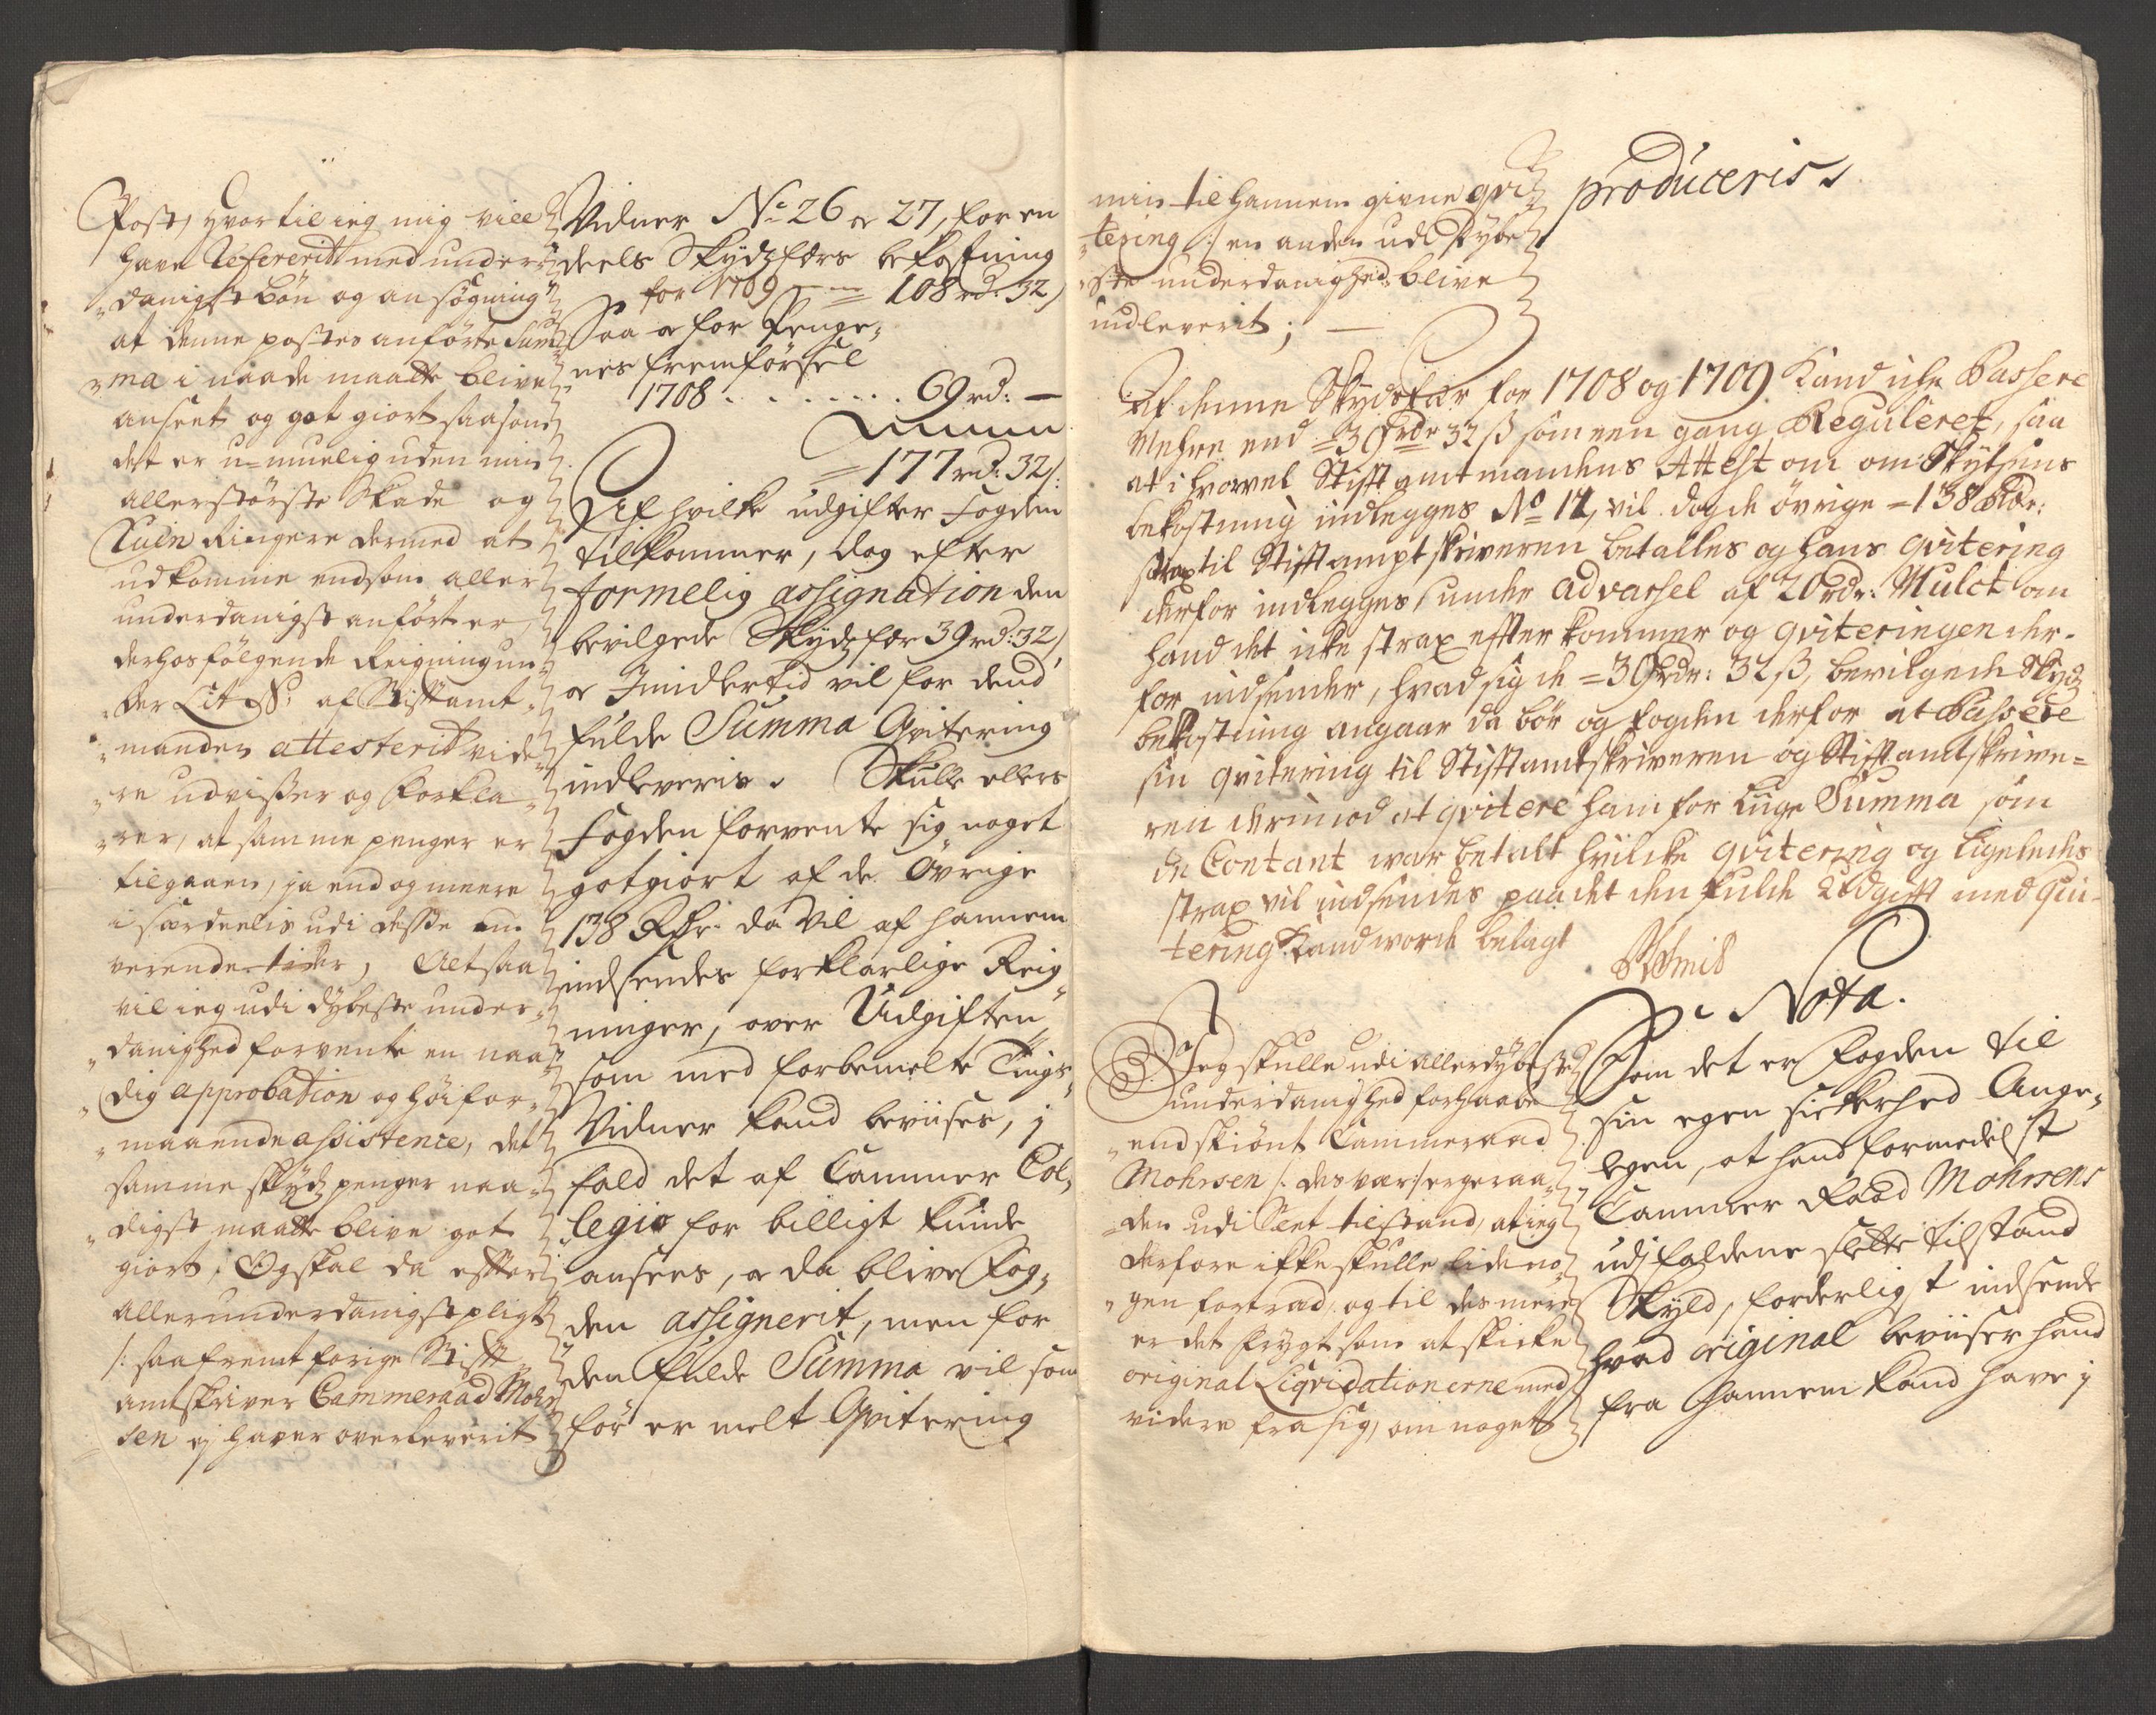 Post, hvor til ieg mig vill
have Refererit med under-
danigst bön og ansøgning
at denne postes anførte Sum-
ma i naade maatte blive
anseet og got giort saasom
det er u-muelig uden min
allerstørste Skade og
Ruin Ringere dermed at
udkomme endsom aller
underdanigst anført er,
derhos følgende Reigning un-
der Lit af Stiftamt-
manden attesterit vide-
re udviser og forkla-
rer, at samme penger er
tilgaaen, ja end og meere
i særdeelis udi disse
verende tider, Altsaa
vil ieg udi dybeste under-
danighed forvente en naa-
dig approbation og höifor-
maaende assistence, det
samme skydz penger naa-
digst maatte blive got
giort, Og skal da efter
allerunderdanigst pligt
/: saafremt forige Stift
amtskriver Cammeraad Mohr-
sen ej haver overleverit
Vidner No 26 og 27, for en
deels Skydzfærs bekostning
for 1709 = 108 rd: 32 /
Saa og for Penge-
nes fremførsel
1708 . . . . . . . 69 rd: —
Summa
= 177 rd: 32 /:
Af hvilke udgifter Fogden
tilkommer, dog efter
formelig assignation den
bevilgede Skydzfær 39 rd: 32 /
og Imidlertid vil for dend
fulde Summa Qvitering
indleveris. Skulle ellers
Fogden forvente sig noget
gotgiort af de Övrige
138 Rdr. da vil af hannem
indsendes forklarlige Reig-
ninger, over Udgiften
som med forbemelte Tings-
Vidner kand beviises, i
fald det af Cammer Col-
legio for billigt kunde
ansees, og da blive Fog-
den assignerit, men for
den fulde Summa vil som
før er melt Qvitering
min til hannem givne qvi-
tering /: en anden udi dybe-
ste underdanighed blive
indleverit; —
produceris
Af denne Skydsfær for 1708 og 1709. kand icke Passere
Mehre end = 39 rdr 32 ß som een gang Reguleret, saa
at i hvorvel Stiftamtmandens Attest om om Skytsens
bekostning indlegges No 12, vil dog de övrige = 138 Rdr:
strax til Stiftamptskriveren betalles og hans qvitering
derfor indlegges, under advarsel af 20 rdr: Mulct om
hand det icke strax efterkommer og qviteringen der-
for indsender, hvad sig de = 39 rdr: 32 ß, bevilgede Skydz
bekostning angaar da bør og fogden derfor at Passere
sin qvitering til Stiftamtskriveren og Stiftamtskrive-
ren derimod at qvitere ham for liige Summa som
de Contant war betalt hvilcke qvitering og ligeledis
strax vil indsendes paa det den fulde Udgift med qvi-
tering kand worde belagt
Nota.
Jeg skulle udi allerdybeste
underdanighed forhaabe
endskiönt Cammeraad
Mohrsen /: desvær :/ er geraa-
den udi Slet tilstand, at ieg
derfore ikke skulle lide no-
gen fortræd, og til des mere
er det frygtsom at skicke
original Liqvidationerne med
videre fra sig, om noget
Som det er Fogden til
sin egen sickerhed Ange-
legen, at hand formedelst
Cammer Raad Mohrsens
udj faldene slette tilstand
Skyld, forderligst indsende
hvad original beviiser hand
fra hannem kand have i